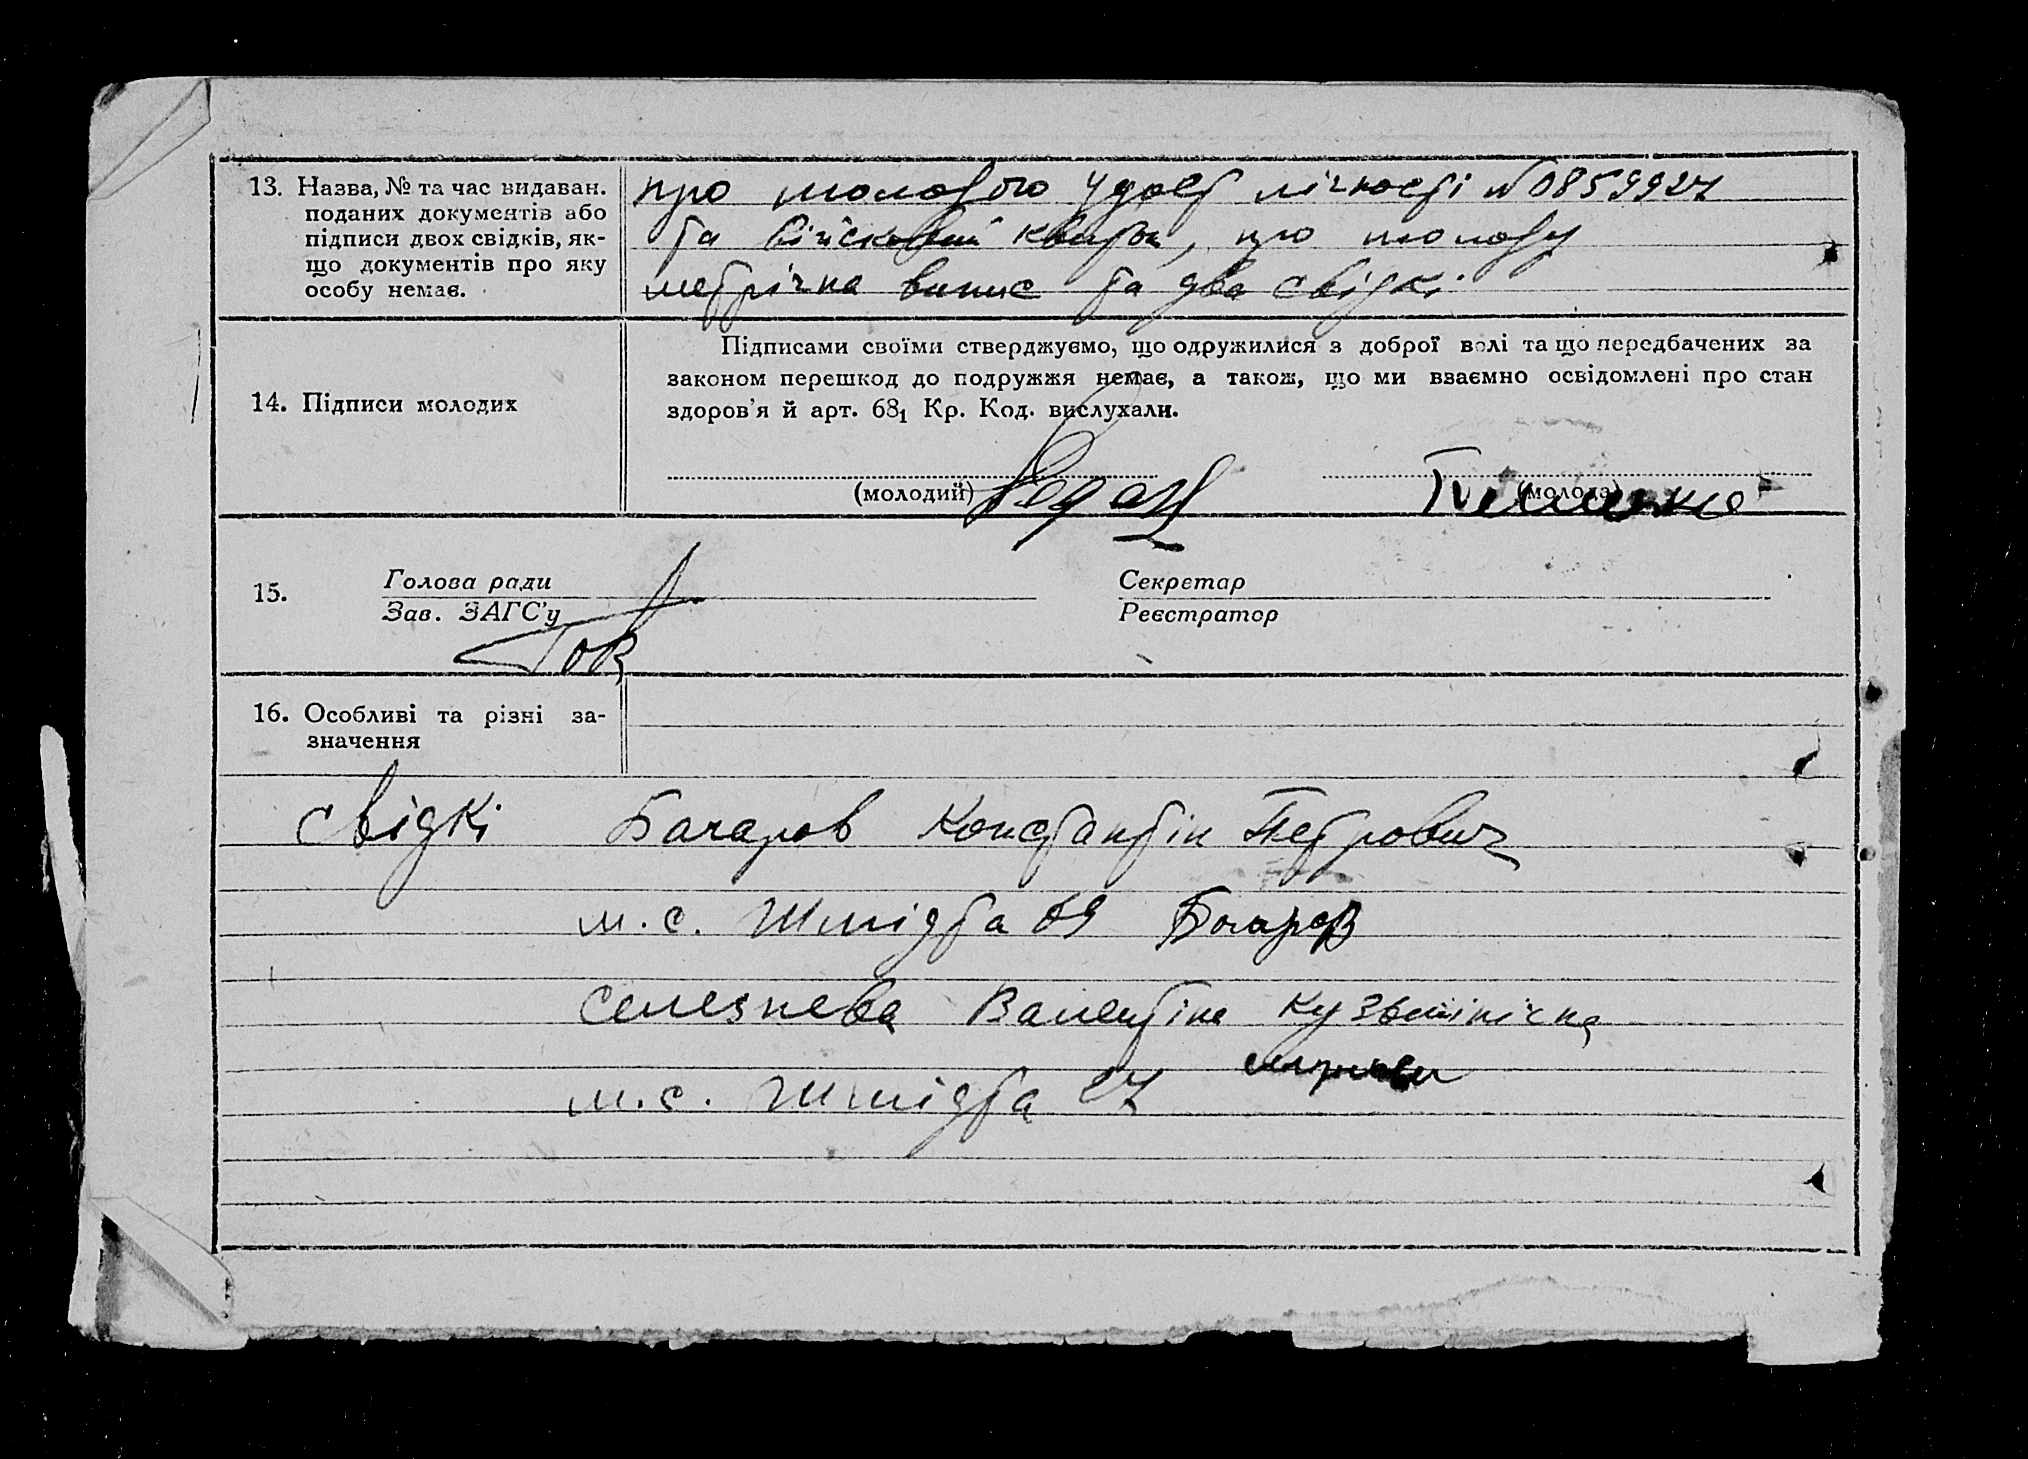 13. Назва, № та час видаван.
поданих документів або
підписи двох свідків, як-
що документів про яку
особу немає.
про молодого удост лічності №0859927
та війсковий квиток, про молоду
метрічна випис та два свідкі
14. Підписи молодих
Підписами своїми стверджуємо, що одружилися з доброї волі та що передбачених за
законом перешкод до подружжя немає, а також, що ми взаємно освідомлені про стан
здоров'я й арт. 68₁ Кр. Код. вислухали.
(молодий)
(молода)
15.
Голова ради
Зав. ЗАГС'у
Секретар
Реєстратор
16. Особливі та різні за-
значення
свідкі Бачаров Константін Петрович
м.с. Шмідта 69 Бачаров
Селезнева Валентіна Кузьмінічна
м.с. Шмідта 27